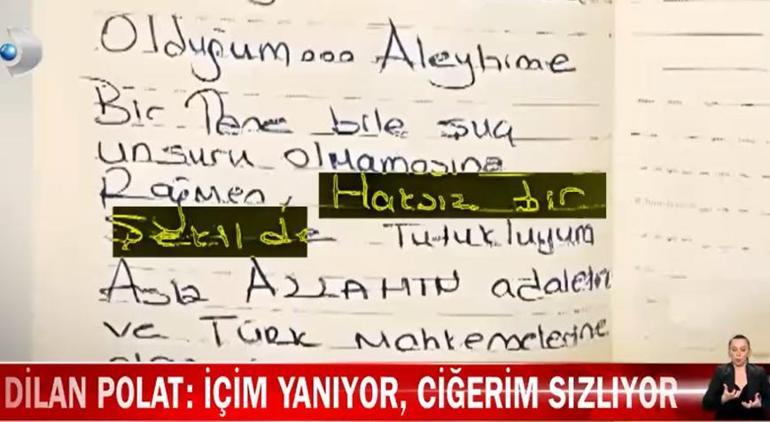 Olduğum... Aleyhime
Bir Tane bile suç
unsuru olmamasına
Rağmen, Haksız bir
Şekilde Tutukluyum
Asla ALLAHIN adaletin
ve TÜRK Mahkemelerine
DİLAN POLAT: İÇİM YANIYOR, CİĞERİM SIZLIYOR